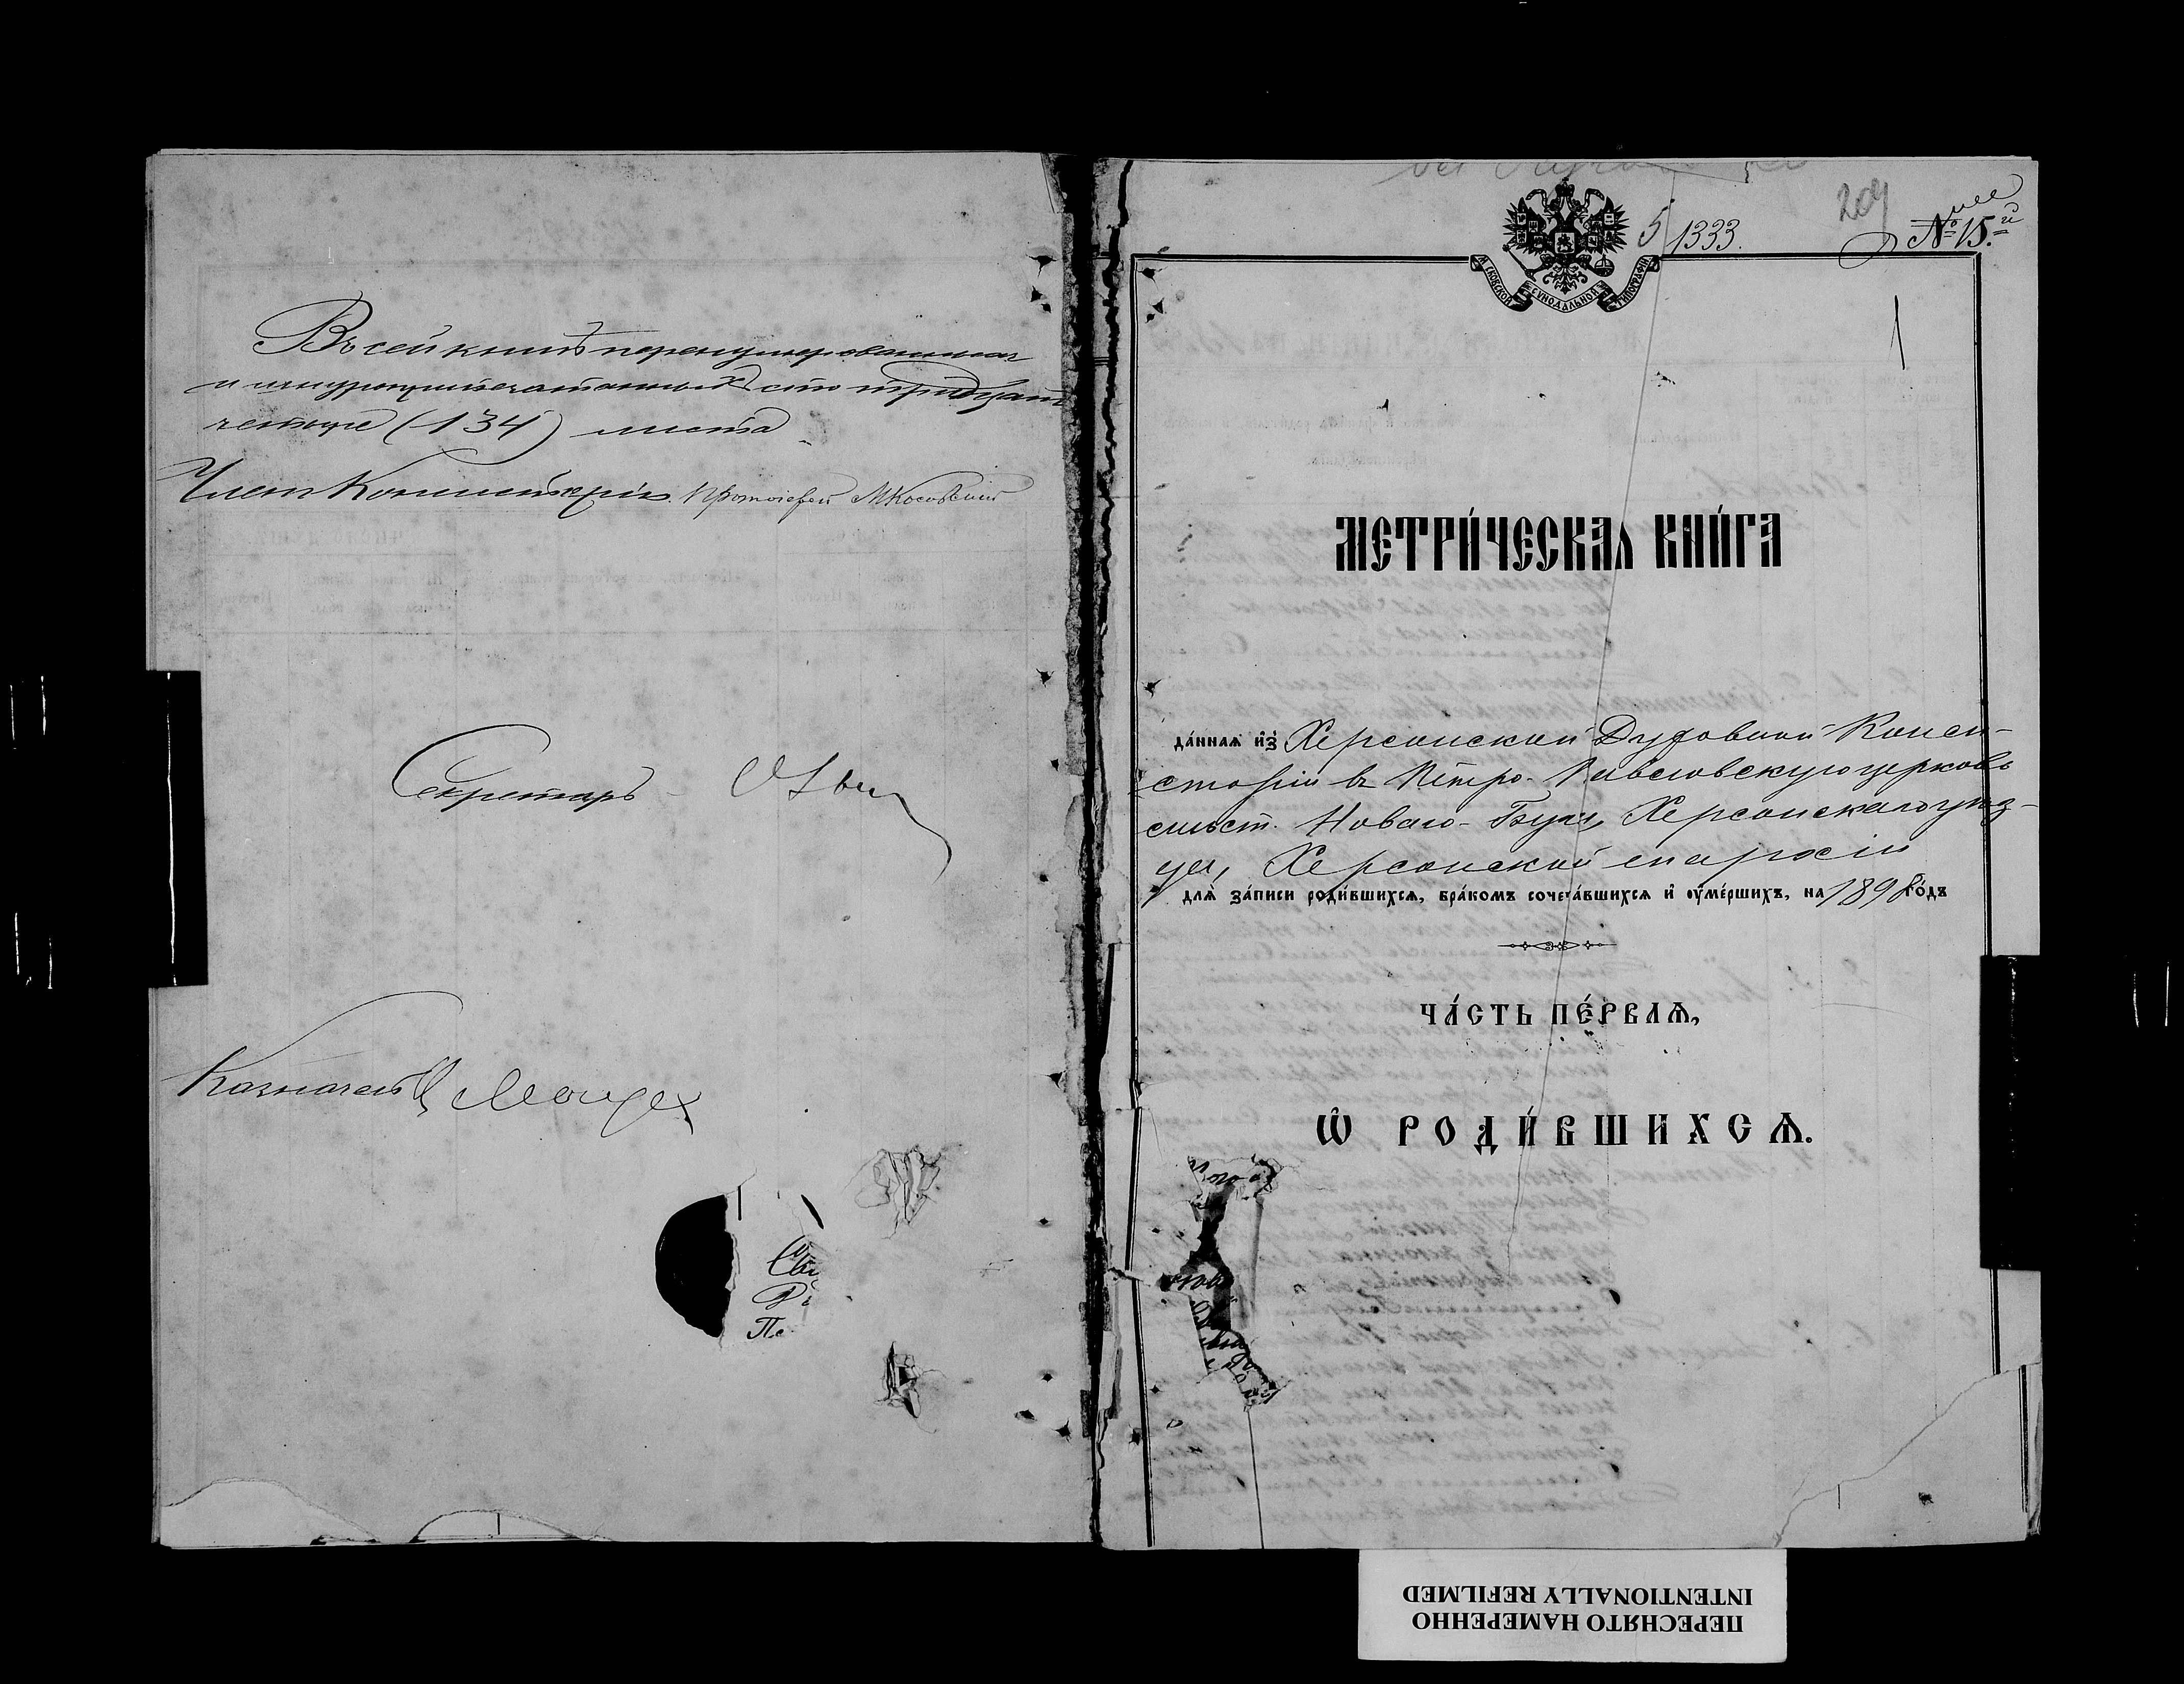 Въ сей книгѣ перенумерованныхъ
и шнуроприпечатанныхъ сто тридцать
четыре (134) листа
Членъ Консисторіи Протоіерей М Косовскій
Секретарь
Казначей
Свя
Пе
5/1333.
209
№ 15.й
МОСКОВСКОЙ СѴНОДАЛЬНОЙ ТИПОГРАФІИ
1
МЕТРИ́ЧЕСКАЯ КНИ́ГА
да́ннаѧ и҆з̾ Херсонской Духовной Конси-
сторіи въ Петро-Павловскую церковь
мѣст. Новаго-Буга, Херсонскаго уѣз-
да, Херсонской епархіи
длѧ̀ за́писи роди́вшихсѧ, бра́комъ сочета́вшихсѧ и҆ ѹ҆ме́ршихъ, на 1898 го́дъ
ЧА́СТЬ ПЕ́РВАѦ,
Ѡ҆ РОДИ́ВШИХСѦ.
ПЕРЕСНЯТО НАМЕРЕННО
INTENTIONALLY REFILMED